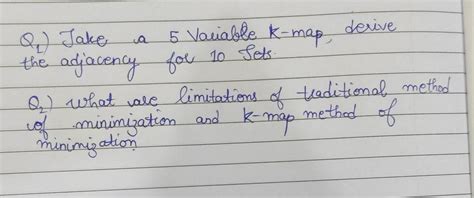 Q1) Take a 5 Variable K-map, derive
the adjacency for 10 Sets.
Q2) what are limitations of traditional method
of minimization and K-map method of
minimization